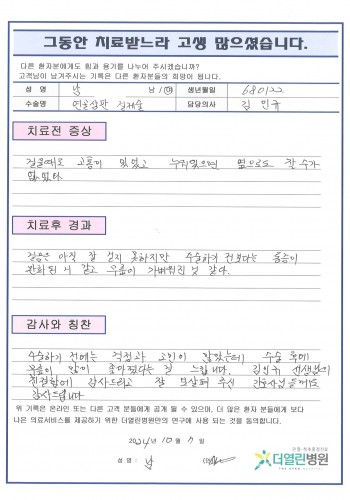 그동안 치료받느라 고생 많으셨습니다.
다른 환자분에게도 힘과 용기를 나누어 주시겠습니까?
고객님이 남겨주시는 기록은 다른 환자분들의 희망이 됩니다.
성 명 박 남 / 여 생년월일 680122
수술명 연골성형 절제술 담당의사 김인규
치료전 증상
걸을때도 고통이 있었고 누워있으면 옆으로도 잘 수가
없었다.
치료후 경과
걸음은 아직 잘 걷지 못하지만 수술하기 전보다는 통증이
완화된 거 같고 무릎이 가벼워진 것 같다.
감사와 칭찬
수술하기 전에는 걱정과 고민이 많았는데 수술 후에
무릎이 많이 좋아졌다는 걸 느낍니다. 김인규 선생님의
친절함에 감사드리고 잘 보살펴 주신 간호사님들께도
감사드립니다
위 기록은 온라인 또는 다른 고객 분들에게 공개 될 수 있으며, 더 많은 환자 분들에게 보다
나은 의료서비스를 제공하기 위한 더열린병원만의 연구에 사용 되는 것을 동의합니다.
2024년 10월 7일
성 명 : 박 (인)
더열린병원